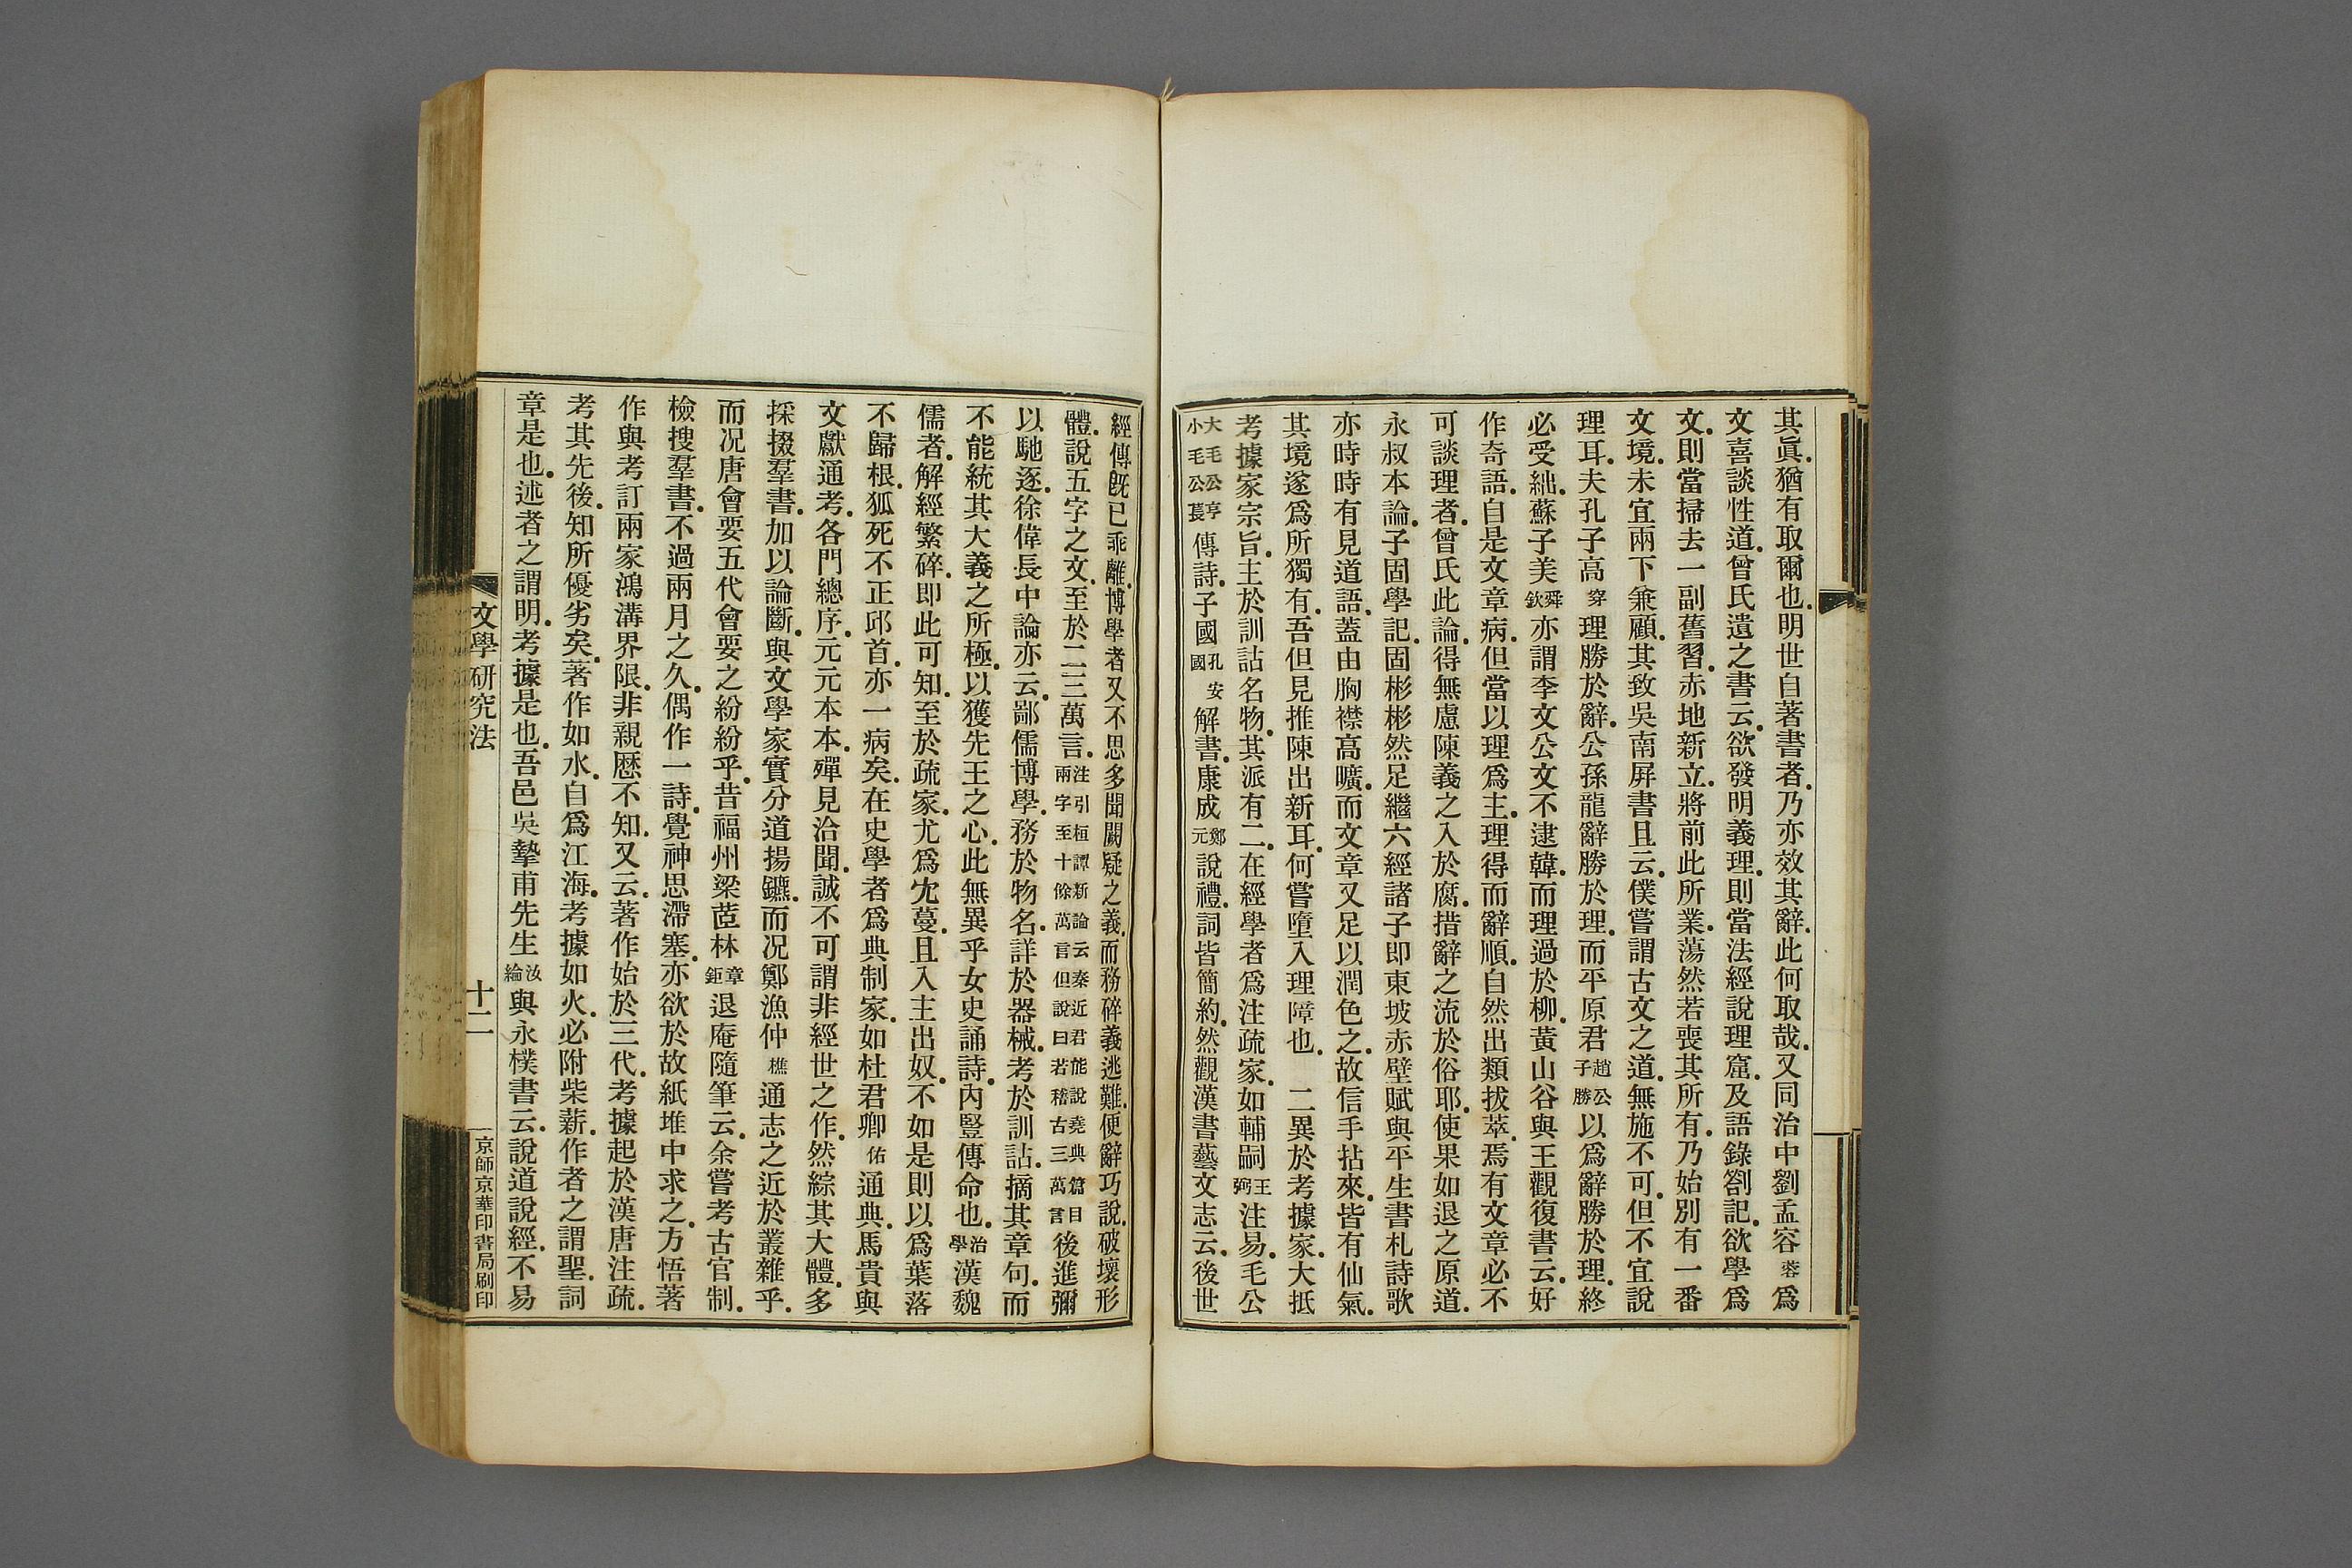 其眞猶有取爾也明世自著書者乃亦效其辭此何取哉又同治中劉孟容蓉爲
文喜談性道曾氏遺之書云欲發明義理則當法經說理窟及語錄劄記欲學爲
文則當掃去一副舊習赤地新立將前此所業蕩然若喪其所有乃始別有一番
文境未宜兩下兼顧其致吳南屏書且云僕嘗謂古文之道無施不可但不宜說
理耳夫孔子高穿理勝於辭公孫龍辭勝於理而平原君趙公子勝公以爲辭勝於理終
必受絀蘇子美舜欽亦謂李文公文不逮韓而理過於柳黃山谷與王觀復書云好
作奇語自是文章病但當以理爲主理得而辭順自然出類拔萃焉有文章必不
可談理者曾氏此論得無慮陳義之入於腐措辭之流於俗耶使果如退之原道
永叔本論子固學記固彬彬然足繼六經諸子即東坡赤壁賦與平生書札詩歌
亦時時有見道語蓋由胸襟高曠而文章又足以潤色之故信手拈來皆有仙氣
其境遂爲所獨有吾但見推陳出新耳何嘗墮入理障也　二異於考據家大抵
考據家宗旨主於訓詁名物其派有二在經學者爲注疏家如輔嗣王弼注易毛公
大毛公亨小毛公萇傳詩子國孔安國解書康成鄭元說禮詞皆簡約然觀漢書藝文志云後世
經傳旣已乖離博學者又不思多聞闕疑之義而務碎義逃難便辭巧說破壞形
體說五字之文至於二三萬言注引桓譚新論云秦近君能說堯典篇目兩字至十餘萬言但說曰若稽古三萬言後進彌
以馳逐徐偉長中論亦云鄙儒博學務於物名詳於器械考於訓詁摘其章句而
不能統其大義之所極以獲先王之心此無異乎女史誦詩內豎傳命也治學漢魏
儒者解經繁碎即此可知至於疏家尤爲宂蔓且入主出奴不如是則以爲葉落
不歸根狐死不正邱首亦一病矣在史學者爲典制家如杜君卿佑通典馬貴與
文獻通考各門總序元元本本殫見洽聞誠不可謂非經世之作然綜其大體多
採掇羣書加以論斷與文學家實分道揚鑣而况鄭漁仲樵通志之近於叢雜乎
而况唐會要五代會要之紛紛乎昔福州梁茝林章鉅退庵隨筆云余嘗考古官制
檢搜羣書不過兩月之久偶作一詩覺神思滯塞亦欲於故紙堆中求之方悟著
作與考訂兩家鴻溝界限非親歷不知又云著作始於三代考據起於漢唐注疏
考其先後知所優劣矣著作如水自爲江海考據如火必附柴薪作者之謂聖詞
章是也述者之謂明考據是也吾邑吳摯甫先生汝綸與永樸書云說道說經不易
文學研究法
十二
京師京華印書局刷印